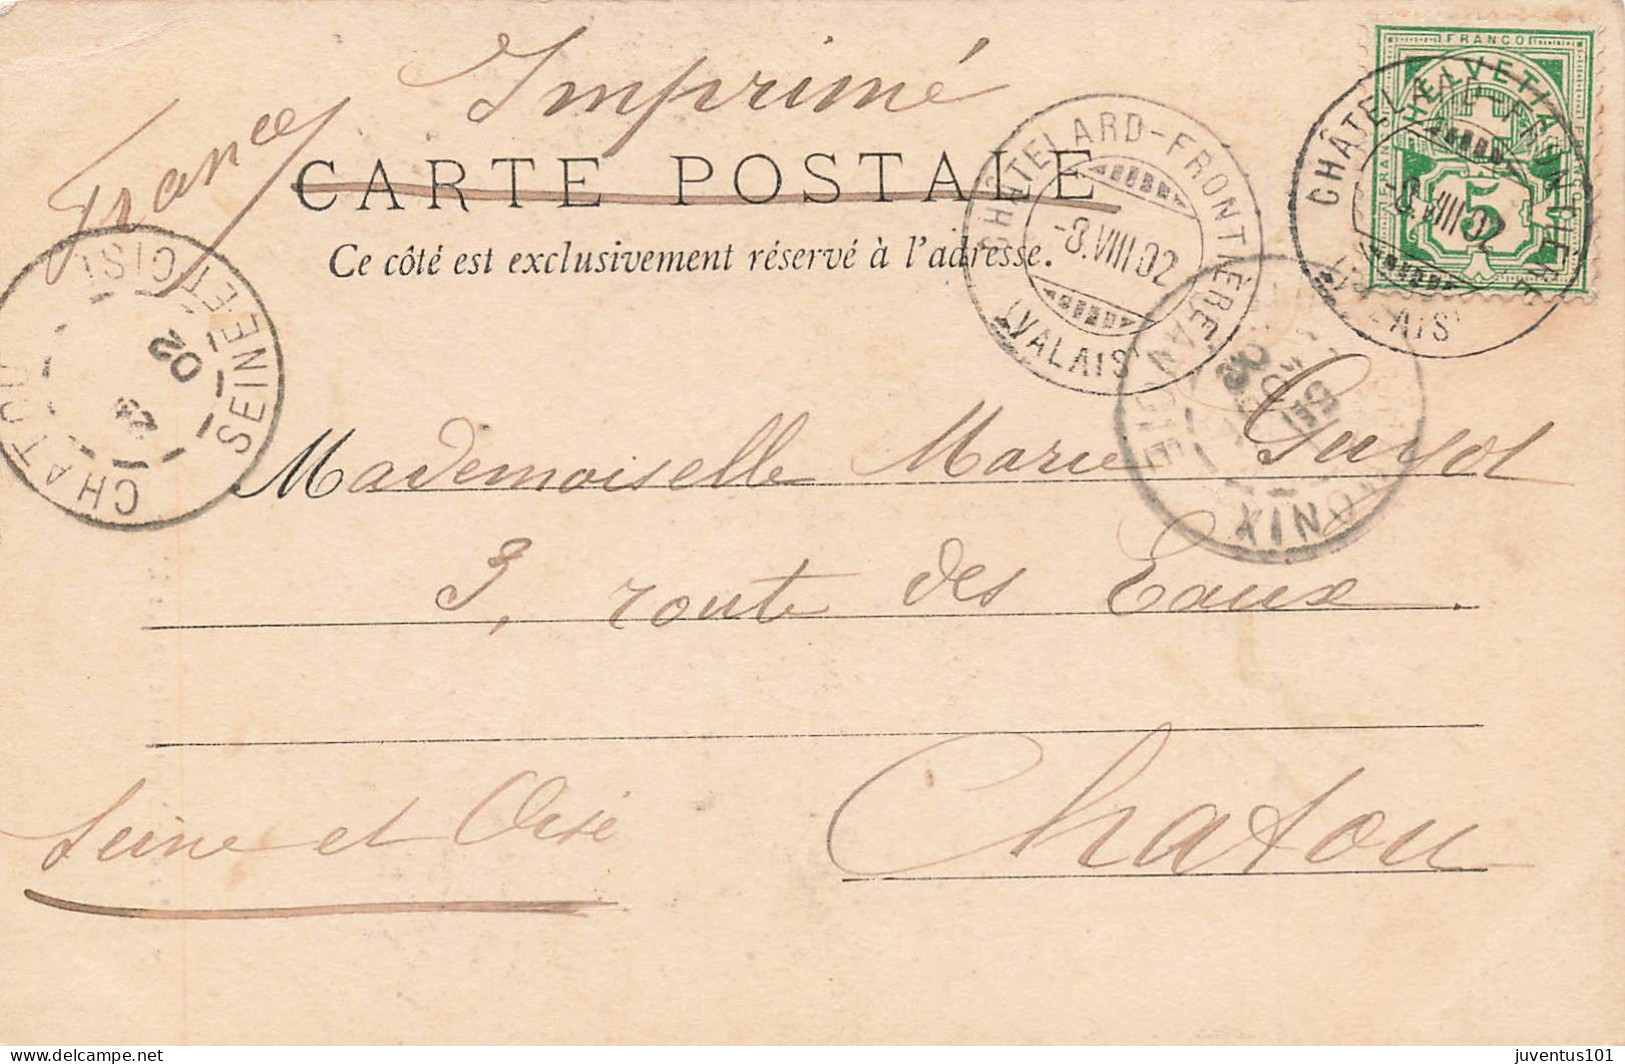 Imprimé
France
CARTE POSTALE
Ce côté est exclusivement réservé à l'adresse.
FRANCO
HELVETIA
5
CHÂTELARD-FRONTIÈRE
-8.VIII.02
(VALAIS)
CHÂTELARD-FRONTIÈRE
-8.VIII.02
CHATOU
SEINE-ET-OISE
02
Mademoiselle Marie Guyot
3, route des Eaux.
Chatou
Seine et Oise
juventus101